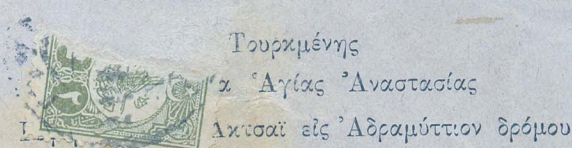 Τουρκμένης
α Ἁγίας Ἀναστασίας
Ακτσαϊ εἰς Ἀδραμύττιον δρόμου